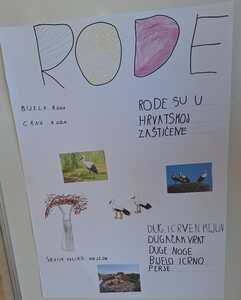 RODE
BIJELA RODA
CRNA RODA
RODE SU U
HRVATSKOJ
ZAŠTIĆENE
DUG I CRVEN KLJUN
DUGAČAK VRAT
DUGE NOGE
BIJELO I CRNO
PERJE